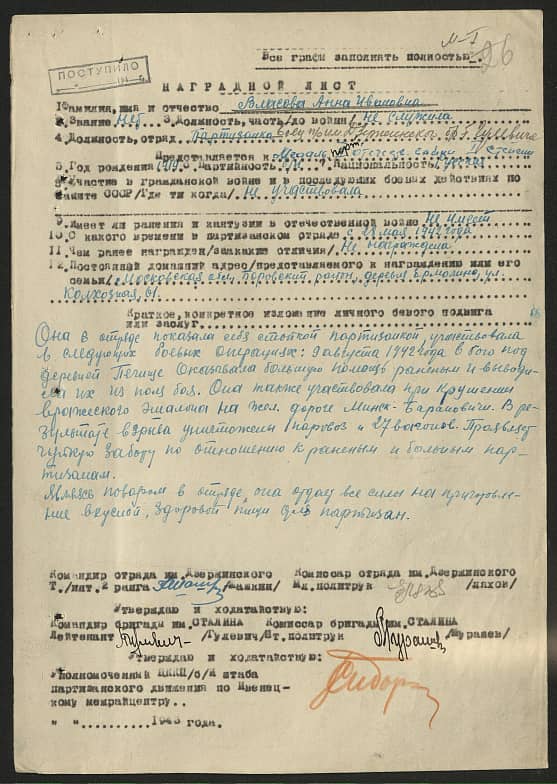 М-I 26
Все графы заполнять полностью.
ПОСТУПИЛО
НАГРАДНОЙ ЛИСТ
1 Фамилия, имя и отчество Власова Анна Ивановна
2. Звание Нет 3. Должность, часть /до войны/ не служила
4. Должность, отряд Партизанка
Представляется к Медаль парт. отеч. войны II степени
5. Год рождения 1919 6. Партийность б/п 7. Национальность русская
8 Участие в гражданской войне и в последующих боевых действиях по
защите СССР /Где ти когда/ Не участвовала
9. Имеет ли ранения и контузии в отечественной войне Не имеет
10. С какого времени в партизанском отряде с 28 мая 1942 года
11. Чем ранее награжден /знакакие отличия/ Не награждена
12. Постоянный домашний адрес /представляемого к награждению или его
семьи/ Московская обл, Боровский район, деревня Ермолино, ул.
Колхозная, 61.
Краткое, конкретное изложение личного боевого подвига
или заслуг
Она в отряде показала себя стойкой партизанкой, участвовала
в следующих боевых операциях: 9 августа 1942 года в бою под
деревней Пегище оказывала большую помощь раненым и выводи-
ла их из поля боя. Она также участвовала при крушении
вражеского эшалона на жел. дороге Минск-Барановичи. В ре-
зультате взрыва уничтожены паровоз и 27 вагонов. Проявляет
чуткую заботу по отношению к раненым и больным пар-
тизанам.
Являясь поваром в отряде, она отдает все силы на приготовле-
ние вкусной, здоровой пищи для партизан.
Командир отряда им. Дзержинского Комиссар отряда им. Дзержинского
Т./инт. 2 ранга /Шашкин/ Мл. политрук /Ляхов/
Утверждаю и ходатайствую:
Командир бригады им. СТАЛИНА Комиссар бригады им. СТАЛИНА
Лейтенант Гулевич /Гулевич/ Ст. политрук Мураш /Мурашев/
Утверждаю и ходатайствую:
Уполномоченный ЦККП/б/Б штаба
партизанского движения по Ивенец-
кому межрайцентру..
" " .......... 1943 года.